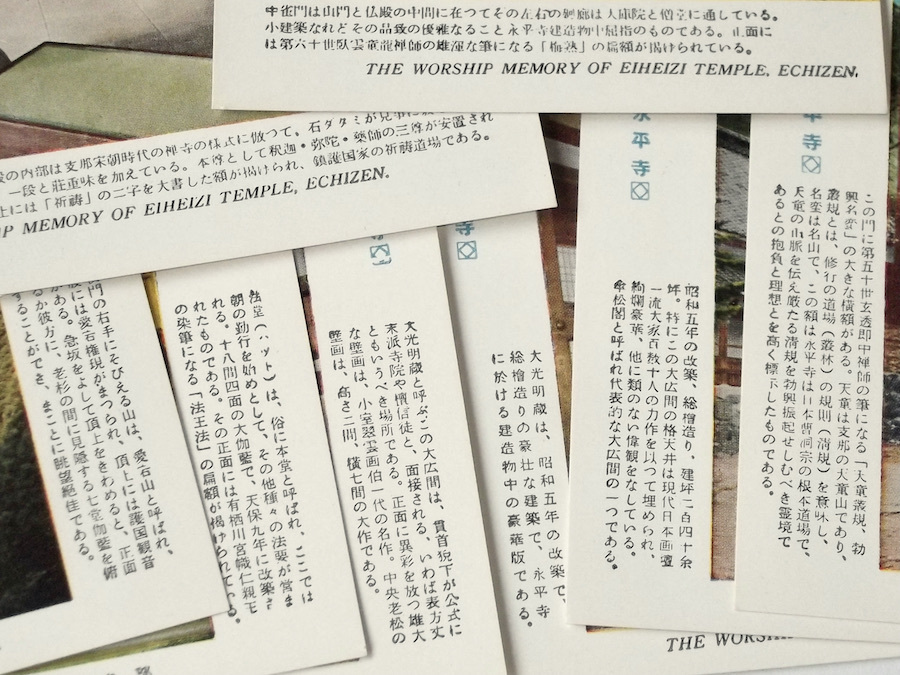 中雀門は山門と仏殿の中間に在つてその左右の廻廊は大庫院と僧堂に通している。
小建築なれどその品致の優雅なること永平寺建造物中屈指のものである。正面に
は第六十世臥雲童龍禅師の雄渾な筆になる「梅熟」の扁額が掲げられている。
THE WORSHIP MEMORY OF EIHEIZI TEMPLE, ECHIZEN.
の内部は支那宋朝時代の禅寺の様式に倣つて、石ダタミが見事に
一段と荘重味を加えている。本尊として釈迦・弥陀・薬師の三尊が安置され
上には「祈祷」の二字を大書した額が掲げられ、鎮護国家の祈祷道場である。
MEMORY OF EIHEIZI TEMPLE, ECHIZEN.
平寺
この門に第五十世玄透即中禅師の筆になる「天童叢規、勃
興名藍」の大きな横額がある。天童は支那の天童山であり、
叢規とは、修行の道場(叢林)の規則(清規)を意味し、
名藍は名山で、この額は永平寺は日本曹洞宗の根本道場で、
天童の山脈を伝え厳たる清規を勃興振起せしむべき霊境で
あるとの抱負と理想とを高く標示したものである。
永平寺
昭和五年の改築、総檜造り、建坪二百四十余
坪。特にこの大広間の格天井は現代日本画壇
一流大家百数十人の力作を以つて埋められ、
絢爛豪華、他に類のない偉観をなしている。
傘松閣と呼ばれ代表的な大広間の一つである。
寺
大光明蔵は、昭和五年の改築で、
総檜造りの豪壮な建築で、永平寺
に於ける建造物中の豪華版である。
大光明蔵と呼ぶこの大広間は、貫首猊下が公式に
末派寺院や檀信徒と、面接される、いわば表方丈
ともいうべき場所である。正面に異彩を放つ雄大
な壁画は、小室翠雲画伯一代の名作。中央老松の
壁画は、高さ二間、横七間の大作である。
法堂(ハツト)は、俗に本堂と呼ばれ、ここでは
朝の勤行を始めとして、その他種々の法要が営ま
れる。十八間四面の大伽藍で、天保九年に改築さ
れたものである。その正面には有栖川宮幟仁親王
の染筆になる「法王法」の扁額が掲げられている。
門の右手にそびえる山は、愛宕山と呼ばれ、
には愛宕権現がまつられ、頂上には護国観音
がある。急坂をよじて頂上をきわめると、正面
るか彼方に、老杉の間に見隠する七堂伽藍を俯
することができ、まことに眺望絶佳である。
THE WORSH